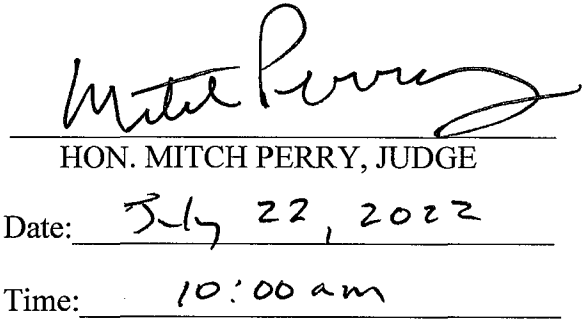 Mitch Perry
HON. MITCH PERRY, JUDGE
Date: July 22, 2022
Time: 10:00 am